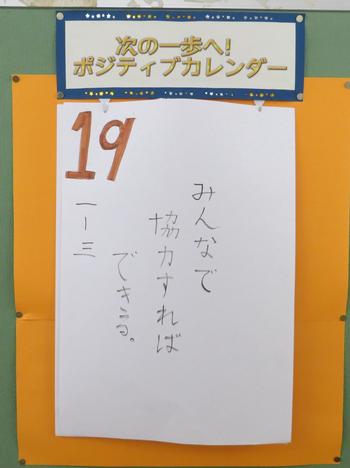 次の一歩へ!
ポジティブカレンダー
19
一ー三
みんなで
協力すれば
できる。